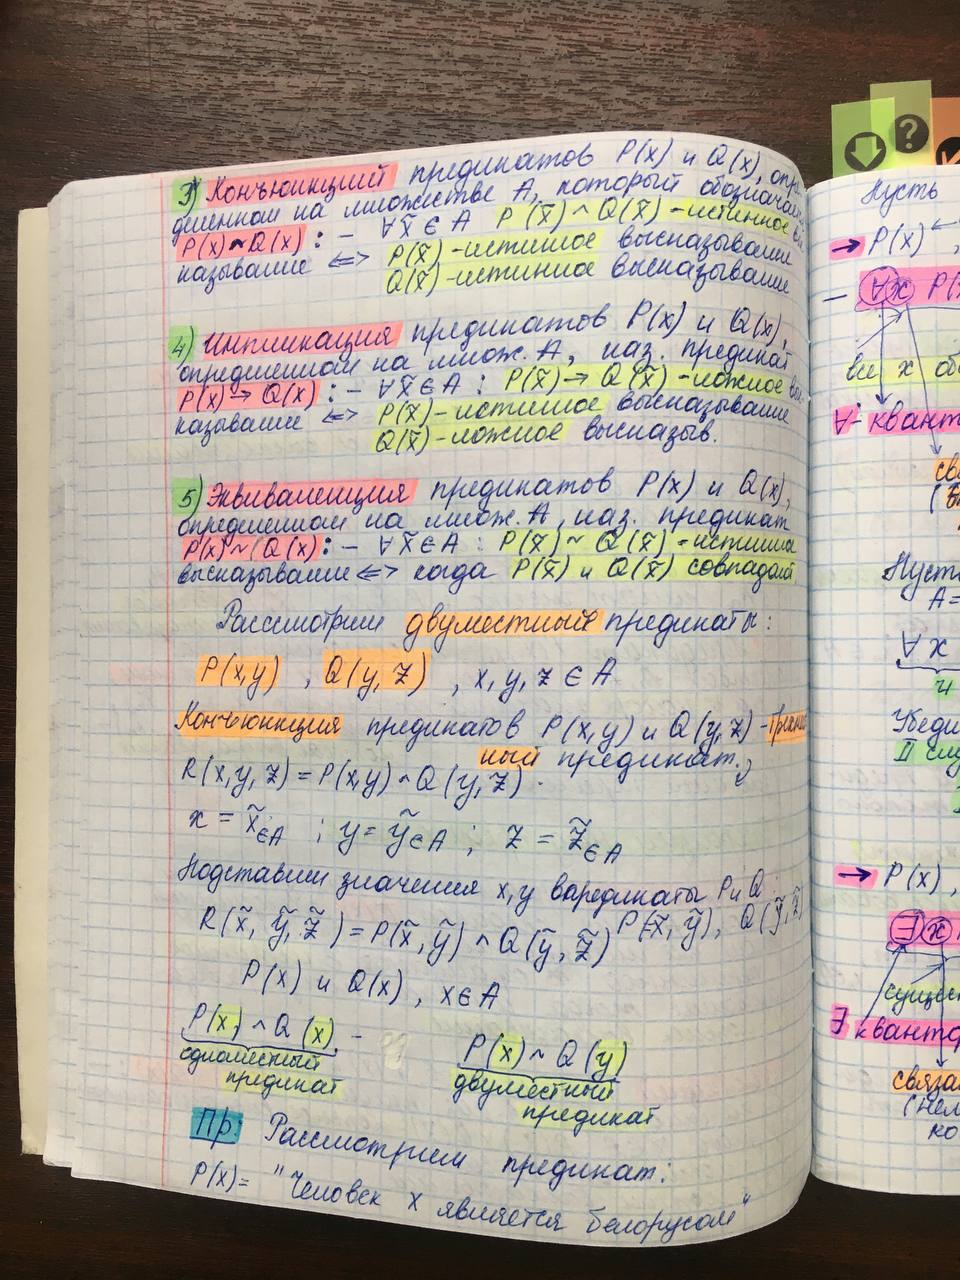 3) Конъюнкцией предикатов P(x) и Q(x), опре-
деленном на множестве A, который обознача
P(x) ∧ Q(x) : – ∀ x̃ ∈ A P(x̃) ∧ Q(x̃) – истинное вы-
казывание <=> P(x̃) – истинное высказывание
Q(x̃) – истинное высказывание
4) Импликация предикатов P(x) и Q(x),
определенном на множ. A, наз. предикат
P(x) → Q(x) : – ∀ x̃ ∈ A : P(x̃) → Q(x̃) – ложное вы-
казывание <=> P(x̃) – истинное высказывание
Q(x̃) – ложное высказыв.
5) Эквиваленция предикатов P(x) и Q(x),
определенном на множ. A, наз. предикат
P(x) ~ (Q(x) : – ∀ x̃ ∈ A : P(x̃) ~ Q(x̃) – истинна
высказывание <=> когда P(x̃) и Q(x̃) совпадают
Рассмотрим двуместные предикаты:
P(x,y) , Q(y, z) , x, y, z ∈ A
Конъюнкция предикатов P(x,y) и Q(y,z) –
ный предикат.
R(x,y,z) = P(x,y) ∧ Q(y,z)
x = x̃ ∈A ; y = ỹ ∈ A ; z = z̃ ∈A
Подставим значения x, y предикаты P и Q :
P(x̃, ỹ), Q(ỹ, z̃)
R(x̃, ỹ, z̃) = P(x̃, ỹ) ∧ Q(ỹ, z̃)
P(x) и Q(x) , x ∈ A
P(x) ∧ Q(x) – P(x) ~ Q(y)
одноместный двуместный
предикат предикат
Пр: Рассмотрим предикат:
P(x) = "Человек x является белорусом"
Пусть
→ P(x) ,
– ∀x P(
все x об
∀ - квант
свя
Пусть
A=
∀ x
и
Убеди
II слу
→ P(x) ,
∃ x
сущес
∃ квантор
связа
(нел
ко